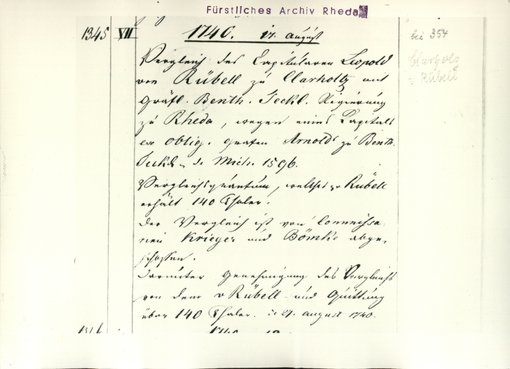 Fürstliches Archiv Rheda
1345 VII 1740. 17. August
Vergleich des Capitularen Leopold
von Rübell zu Clarholtz mit
Gräfl. Benth. Teckl. Regierung
zu Rheda, wegen eines Capitals
ex oblig. Grafen Arnolds zu Benth.
Teckl. d. Mich. 1596.
Vergleichsquantum, welches v Rübell
erhält 140 Thaler.
Der Vergleich ist von Commissa
rien Krieger und abge
schlossen.
Darunter Genehmigung des Vergleichs
von dem v Rübell und Quittung
über 140 Thaler. August 1740.
bei 354
Clarholz
v Rübell